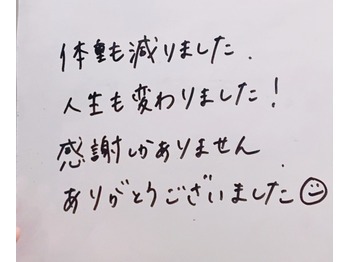 体重も減りました.
人生も変わりました!
感謝しかありません
ありがとうございました☺